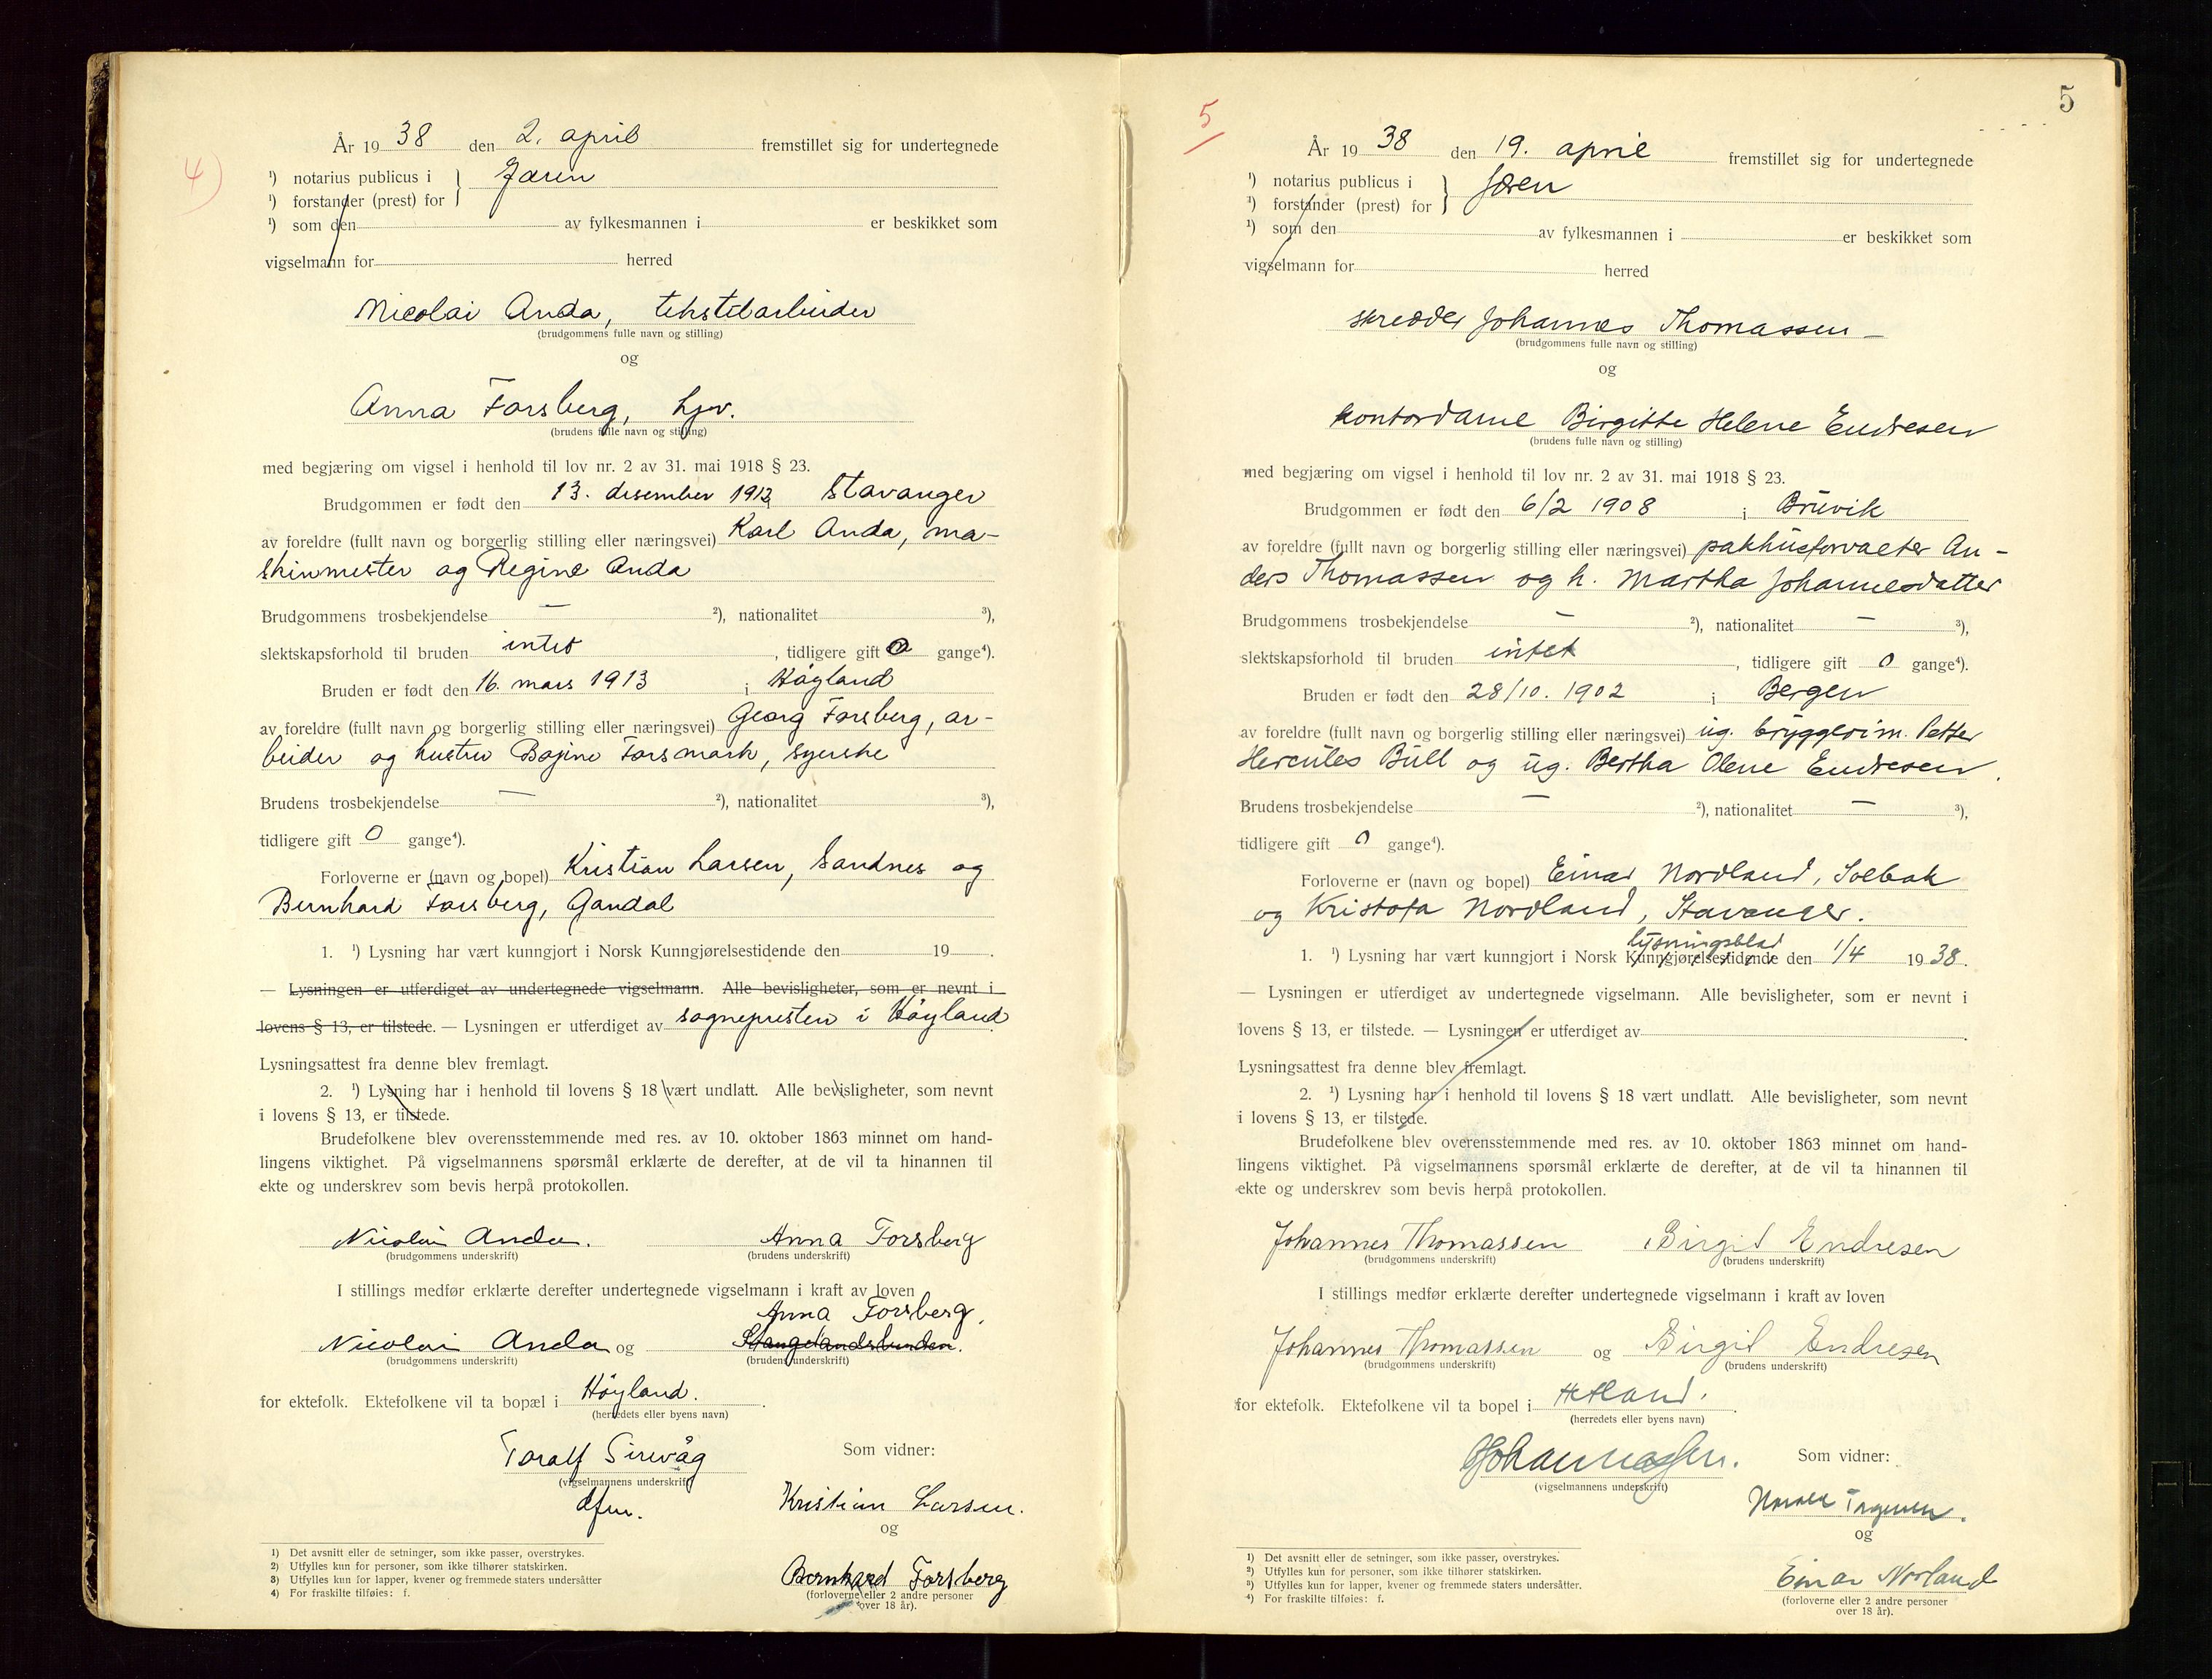 4)
År 19 38 den 2. april fremstillet sig for undertegnede
¹) notarius publicus i } Jæren
¹) forstander (prest) for
¹) som den av fylkesmannen i er beskikket som
vigselmann for herred
Nicolai Anda, tekstilarbeider
(brudgommens fulle navn og stilling)
og
Anna Forsberg, hjv.
(brudens fulle navn og stilling)
med begjæring om vigsel i henhold til lov nr. 2 av 31. mai 1918 § 23.
Brudgommen er født den 13. desember 1912 Stavanger
av foreldre (fullt navn og borgerlig stilling eller næringsvei) Karl Anda, ma-
skinmester og Regine Anda
Brudgommens trosbekjendelse — ²), nationalitet ³),
slektskapsforhold til bruden intet , tidligere gift 0 gange⁴).
Bruden er født den 16. mars 1913 i Høyland
av foreldre (fullt navn og borgerlig stilling eller næringsvei) Georg Forsberg, ar-
beider og hustru Forsmark, syerske
Brudens trosbekjendelse — ²), nationalitet ³),
tidligere gift 0 gange⁴).
Forloverne er (navn og bopel) Kristian Larsen, Sandnes og
Bernhard Forsberg, Gandal
1. ¹) Lysning har vært kunngjort i Norsk Kunngjørelsestidende den 19 .
— Lysningen er utferdiget av undertegnede vigselmann. Alle bevisligheter, som er nevnt i
lovens § 13, er tilstede. — Lysningen er utferdiget av sognepresten i Høyland
Lysningsattest fra denne blev fremlagt.
2. ¹) Lysning har i henhold til lovens § 18 vært undlatt. Alle bevisligheter, som nevnt
i lovens § 13, er tilstede.
Brudefolkene blev overensstemmende med res. av 10. oktober 1863 minnet om hand-
lingens viktighet. På vigselmannens spørsmål erklærte de derefter, at de vil ta hinannen til
ekte og underskrev som bevis herpå protokollen.
Nicolai Anda. Anna Forsberg
(brudgommens underskrift) (brudens underskrift)
I stillings medfør erklærte derefter undertegnede vigselmann i kraft av loven
Anna Forsberg.
Nicolai Anda og Stangelandsbunden.
(brudgommens underskrift) (brudens underskrift)
for ektefolk. Ektefolkene vil ta bopæl i Høyland.
(herredets eller byens navn)
Toralf Sirevåg Som vidner:
(vigselmannens underskrift)
dfm. Kristian Larsen.
og
Bernhard Forsberg
(forloverne eller 2 andre personer
over 18 år).
1) Det avsnitt eller de setninger, som ikke passer, overstrykes.
2) Utfylles kun for personer, som ikke tilhører statskirken.
3) Utfylles kun for lapper, kvener og fremmede staters undersåtter
4) For fraskilte tilføies: f.
5
5
År 19 38 den 19. april fremstillet sig for undertegnede
¹) notarius publicus i } Jæren
¹) forstander (prest) for
¹) som den av fylkesmannen i er beskikket som
vigselmann for herred
skredder Johannes Thomassen —
(brudgommens fulle navn og stilling)
og
kontordame Birgitte Helene Endresen
(brudens fulle navn og stilling)
med begjæring om vigsel i henhold til lov nr. 2 av 31. mai 1918 § 23.
Brudgommen er født den 6/2 1908 i Bruvik
av foreldre (fullt navn og borgerlig stilling eller næringsvei) pakhusforvalter An-
ders Thomassen og h. Martha Johannesdatter
Brudgommens trosbekjendelse — ²), nationalitet — ³),
slektskapsforhold til bruden intet , tidligere gift 0 gange⁴).
Bruden er født den 28/10. 1902 i Bergen
av foreldre (fullt navn og borgerlig stilling eller næringsvei) ug. Petter
Hercules Bull og ug. Bertha Olene Endresen.
Brudens trosbekjendelse — ²), nationalitet — ³),
tidligere gift 0 gange⁴).
Forloverne er (navn og bopel) Einar Nordland, Solbak
og Kristofa Nordland, Stavanger.
lysningsblad
1. ¹) Lysning har vært kunngjort i Norsk Kunngjørelsestidende den 1/4 19 38.
— Lysningen er utferdiget av undertegnede vigselmann. Alle bevisligheter, som er nevnt i
lovens § 13, er tilstede. — Lysningen er utferdiget av .
Lysningsattest fra denne blev fremlagt.
2. ¹) Lysning har i henhold til lovens § 18 vært undlatt. Alle bevisligheter, som nevnt
i lovens § 13, er tilstede.
Brudefolkene blev overensstemmende med res. av 10. oktober 1863 minnet om hand-
lingens viktighet. På vigselmannens spørsmål erklærte de derefter, at de vil ta hinannen til
ekte og underskrev som bevis herpå protokollen.
Johannes Thomassen Birgit Endresen
(brudgommens underskrift) (brudens underskrift)
I stillings medfør erklærte derefter undertegnede vigselmann i kraft av loven
Johannes Thomassen og Birgit Endresen
(brudgommens underskrift) (brudens underskrift)
for ektefolk. Ektefolkene vil ta bopel i Hetland.
(herredets eller byens navn)
Som vidner:
(vigselmannens underskrift)
og
Einar Norland
(forloverne eller 2 andre personer
over 18 år).
1) Det avsnitt eller de setninger, som ikke passer, overstrykes.
2) Utfylles kun for personer, som ikke tilhører statskirken.
3) Utfylles kun for lapper, kvener og fremmede staters undersåtter.
4) For fraskilte tilføies: f.